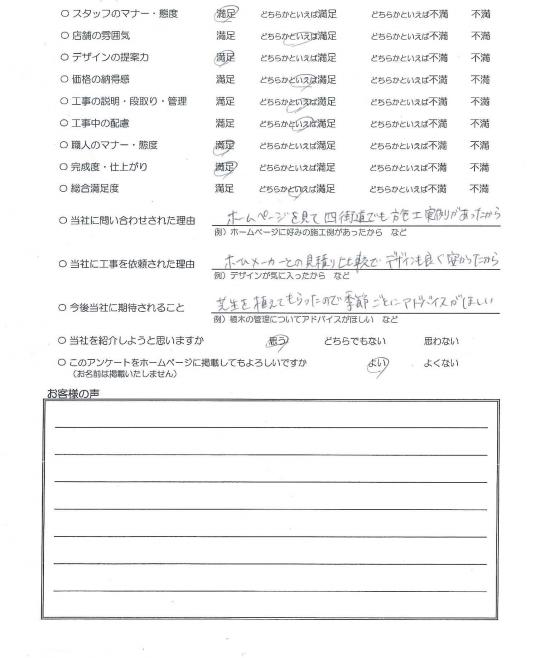 ○ スタッフのマナー・態度 満足 どちらかといえば満足 どちらかといえば不満 不満
○ 店舗の雰囲気 満足 どちらかといえば満足 どちらかといえば不満 不満
○ デザインの提案力 満足 どちらかといえば満足 どちらかといえば不満 不満
○ 価格の納得感 満足 どちらかといえば満足 どちらかといえば不満 不満
○ 工事の説明・段取り・管理 満足 どちらかといえば満足 どちらかといえば不満 不満
○ 工事中の配慮 満足 どちらかといえば満足 どちらかといえば不満 不満
○ 職人のマナー・態度 満足 どちらかといえば満足 どちらかといえば不満 不満
○ 完成度・仕上がり 満足 どちらかといえば満足 どちらかといえば不満 不満
○ 総合満足度 満足 どちらかといえば満足 どちらかといえば不満 不満
○ 当社に問い合わせされた理由 ホームページを見て四街道でも施工実例があったから
例）ホームページに好みの施工例があったから など
○ 当社に工事を依頼された理由 ホームメーカーとの見積り比較で デザインも良く安かったから
例）デザインが気に入ったから など
○ 今後当社に期待されること 芝生を植えてもらったので季節ごとにアドバイスがほしい
例）植木の管理についてアドバイスがほしい など
○ 当社を紹介しようと思いますか 思う どちらでもない 思わない
○ このアンケートをホームページに掲載してもよろしいですか よい よくない
（お名前は掲載いたしません）
お客様の声